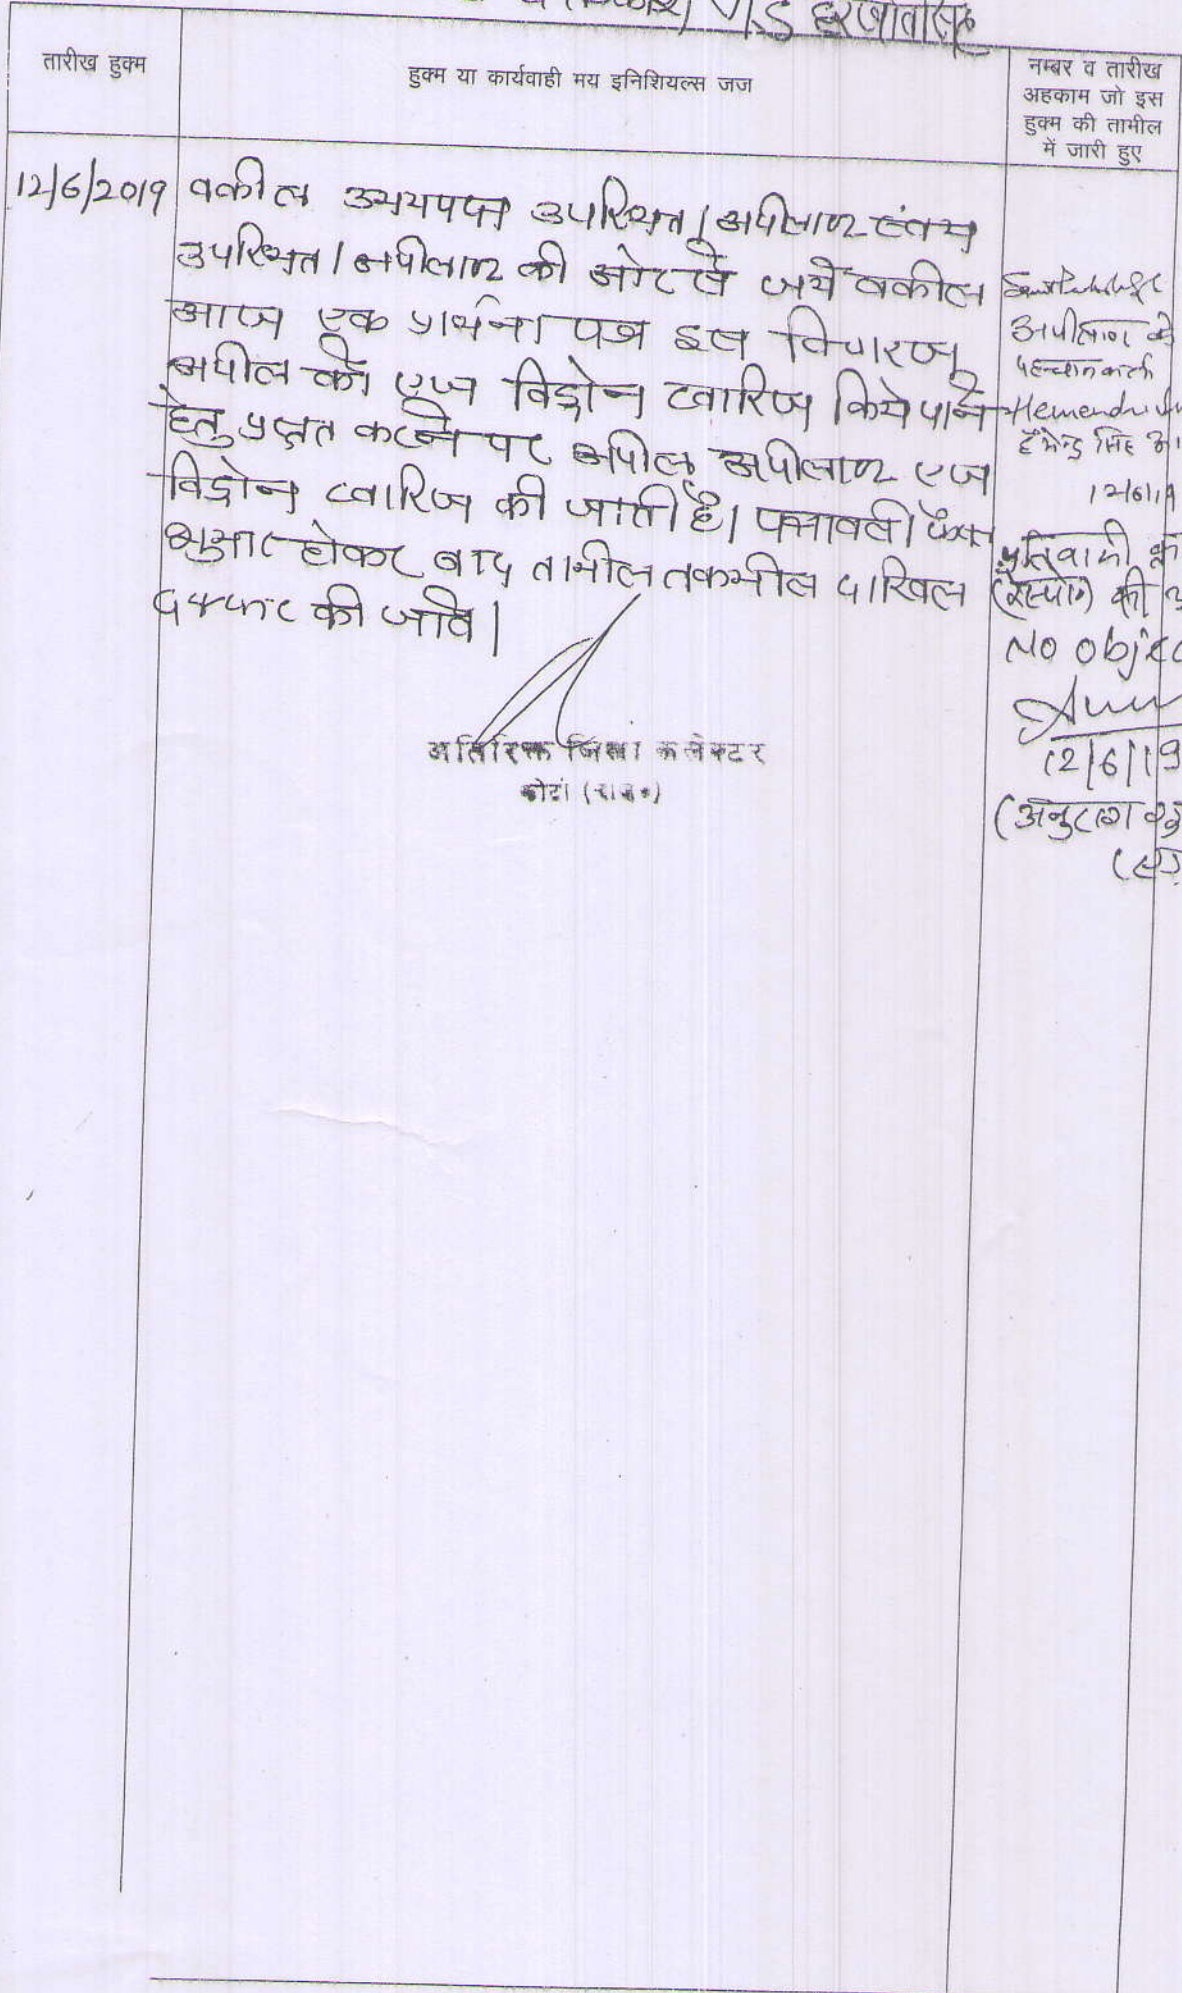 V/S हरजोतसिंह
तारीख हुक्म
हुक्म या कार्यवाही मय इनिशियल्स जज
नम्बर व तारीख
अहकाम जो इस
हुक्म की तामील
में जारी हुए
12/6/2019
वकील उभयपक्ष उपस्थित। अपीलाण्ट स्वंयम
उपस्थित। अपीलाण्ट की ओर से जर्ये वकील
आज एक प्रार्थना पत्र इस
अपील को एज विड्रोन खारिज किये जाने
हेतु प्रस्तुत करने पर अपील अपीलाण्ट एज
विड्रोन खारिज की जाती है। पत्रावली फैसल
शुमार होकर बाद तामील तकमील दाखिल
दफ्तर की जावे।
अतिरिक्त जिला कलेक्टर
कोटा (राज०)
अपीलाण्ट की
पहचानकर्ता
Hemendra
हेमेन्द्र सिंह
12/6/19
प्रतिवादी
(रेस्पो०) की
No objec
12/6/19
(अनुराग